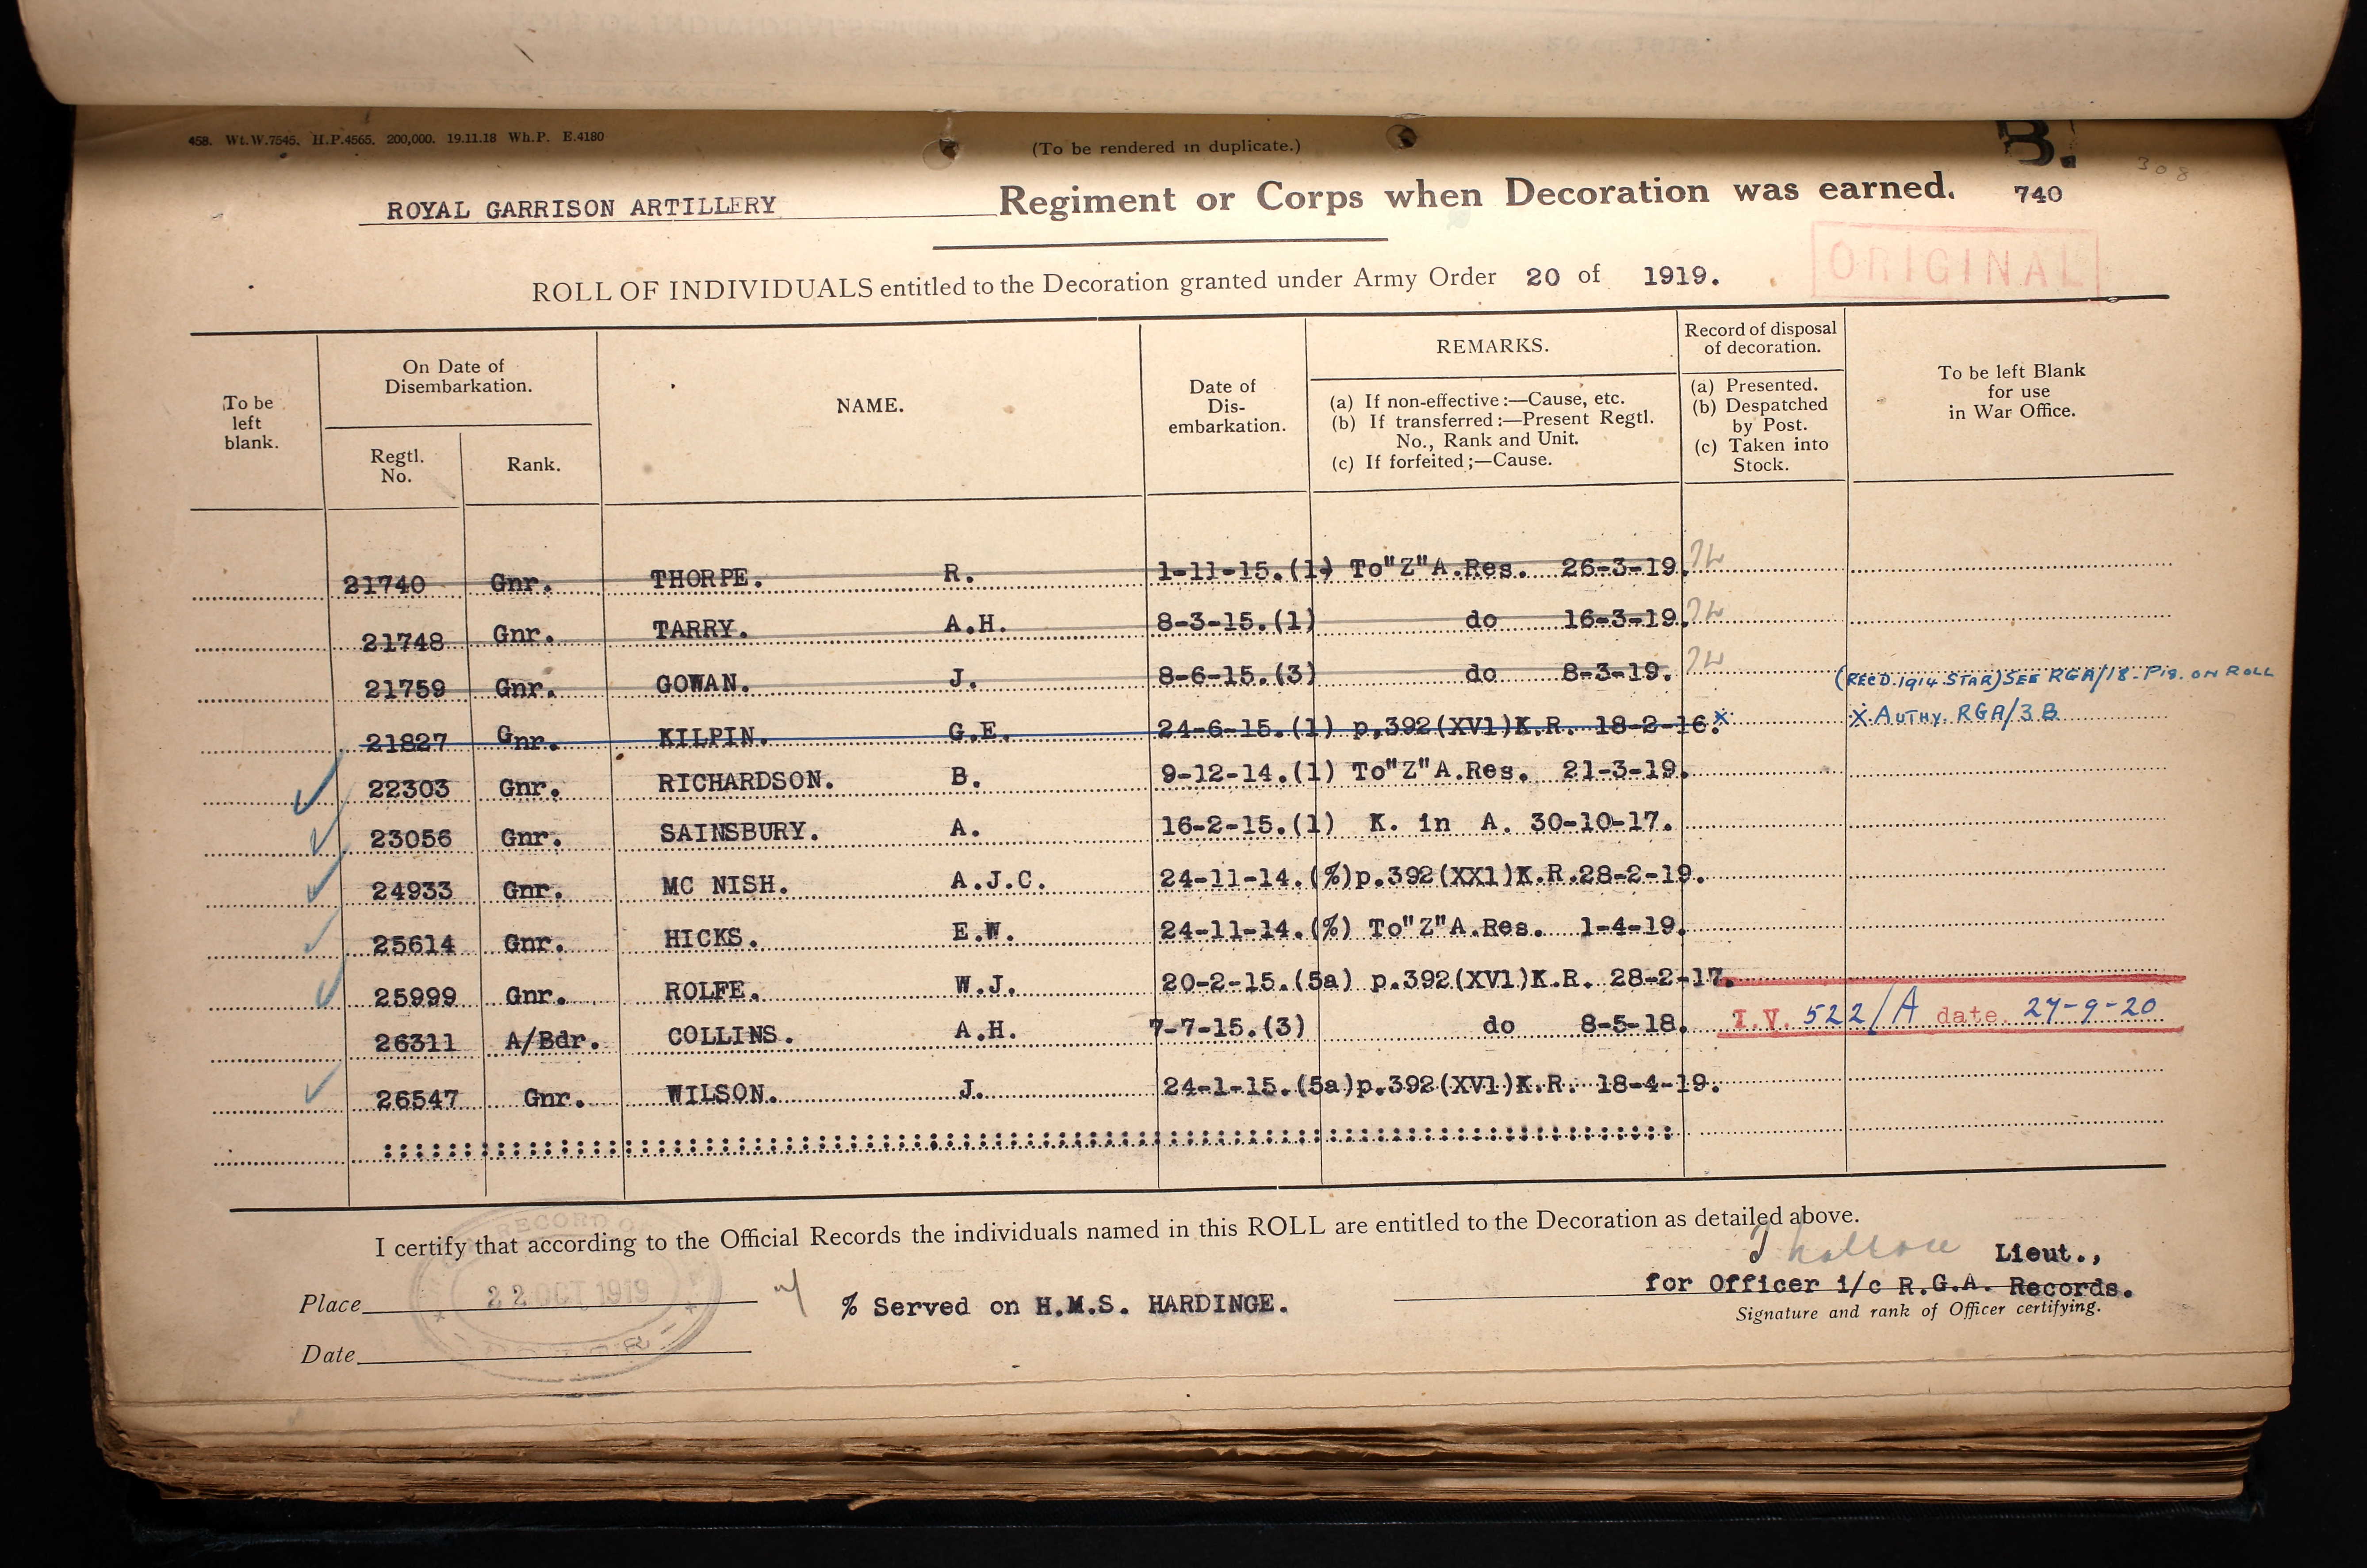 458. Wt.W.7545. H.P.4565. 200,000. 19.11.18 Wh.P. E.4180
(To be rendered in duplicate.)
B.
308
ROYAL GARRISON ARTILLERY Regiment or Corps when Decoration was earned. 740
ORIGINAL
ROLL OF INDIVIDUALS entitled to the Decoration granted under Army Order 20 of 1919.
To be left blank.
On Date of Disembarkation.
Regtl. No.
Rank.
NAME.
Date of Dis-embarkation.
REMARKS.
(a) If non-effective :—Cause, etc.
(b) If transferred :—Present Regtl. No., Rank and Unit.
(c) If forfeited ;—Cause.
Record of disposal of decoration.
(a) Presented.
(b) Despatched by Post.
(c) Taken into Stock.
To be left Blank for use in War Office.
21740 Gnr. THORPE. R. 1-11-15.(1) To"Z"A.Res. 26-3-19.
21748 Gnr. TARRY. A.H. 8-3-15.(1) do 16-3-19.
21759 Gnr. GOWAN. J. 8-6-15.(3) do 8-3-19. (REC'D. 1914 STAR) SEE RGA/18. P19. ON ROLL
21827 Gnr. KILPIN. G.E. 24-6-15.(1) p.392(XV1)K.R. 18-2-16. X X AUTHY. RGA/3B
22303 Gnr. RICHARDSON. B. 9-12-14.(1) To"Z"A.Res. 21-3-19.
23056 Gnr. SAINSBURY. A. 16-2-15.(1) K. in A. 30-10-17.
24933 Gnr. MC NISH. A.J.C. 24-11-14.(%)p.392(XX1)K.R.28-2-19.
25614 Gnr. HICKS. E.W. 24-11-14.(%) To"Z"A.Res. 1-4-19.
25999 Gnr. ROLFE. W.J. 20-2-15.(5a) p.392(XV1)K.R. 28-2-17.
26311 A/Bdr. COLLINS. A.H. 7-7-15.(3) do 8-5-18. I.V. 522/A date 27-9-20
26547 Gnr. WILSON. J. 24-1-15.(5a)p.392(XV1)K.R. 18-4-19.
I certify that according to the Official Records the individuals named in this ROLL are entitled to the Decoration as detailed above.
Lieut.,
for Officer i/c R.G.A. Records.
Signature and rank of Officer certifying.
Place
22 OCT 1919
% Served on H.M.S. HARDINGE.
Date